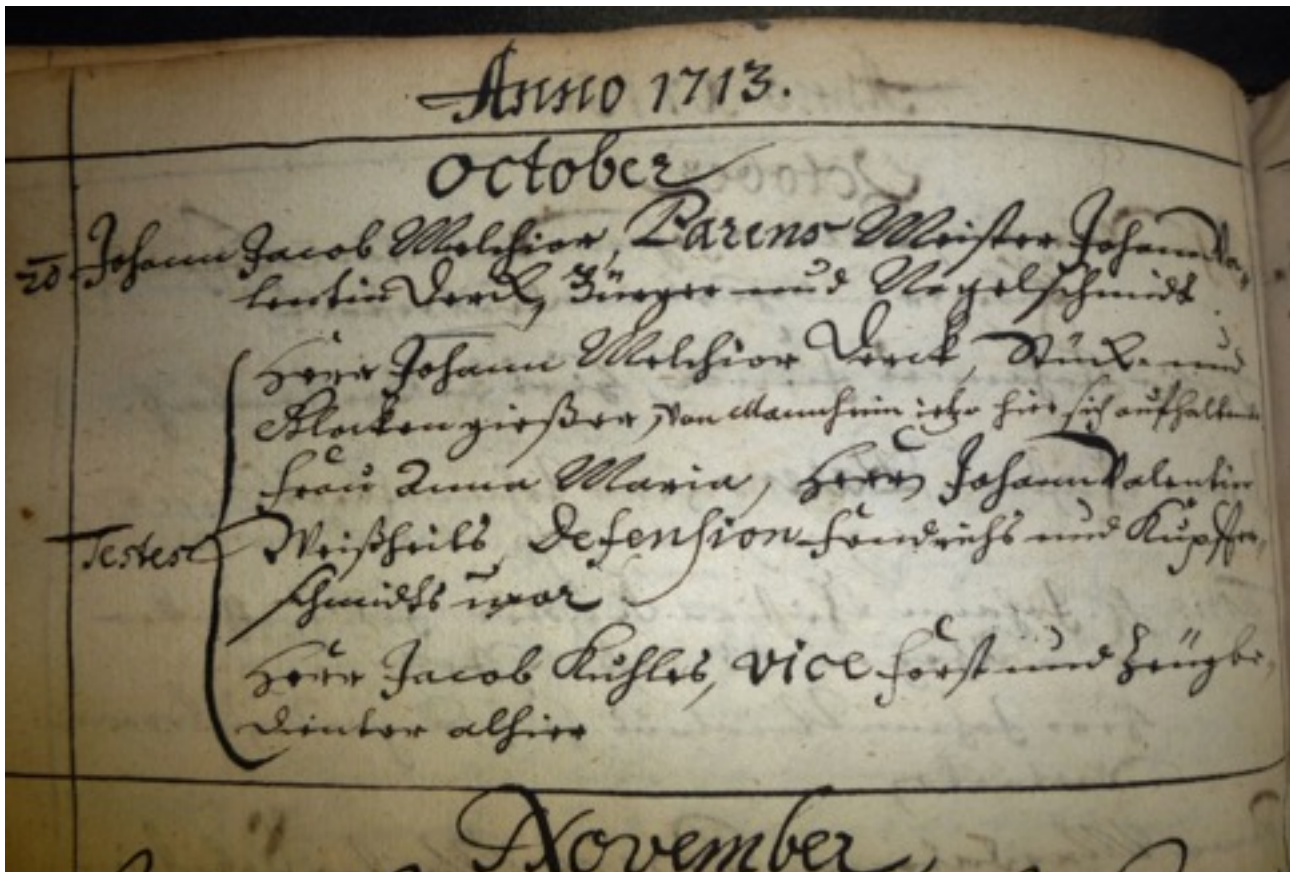 Anno 1713.
October
20. Johann Jacob Melchior, Parens Meister Johann Va-
lentin Derck, Bürger und Nagelschmidt
Herr Johann Melchior Derck, Stück- und
Klockengießer, von Mannheim hier sich aufhaltend
Frau Anna Maria, Herrn Johann Valentin
Testes Weißheits, Defension Fendrichs und Kupffer-
schmidts uxor
Herr Jacob Kuhles, vice Forst und
alhier
November